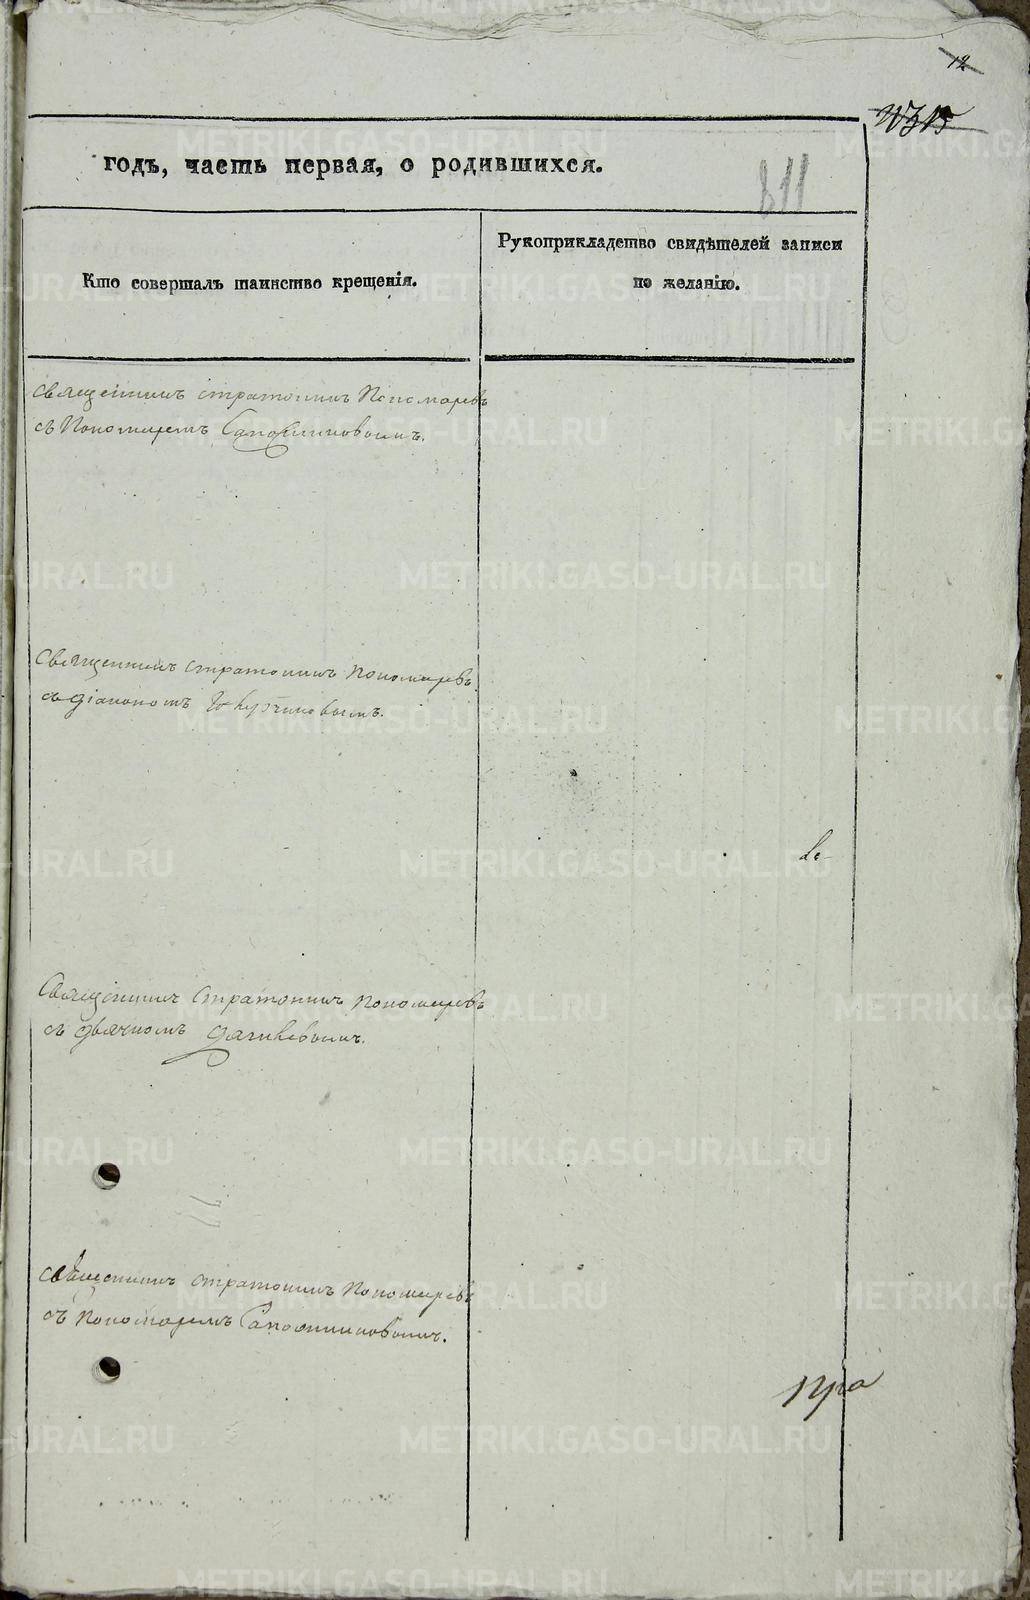 12
годъ, часть первая, о родившихся.
811
Кто совершалъ таинство крещенія.
Рукоприкладство свидѣтелей записи
по желанію.
Священникъ Стратоникъ Пономаревъ
съ Пономаремъ Сапожниковымъ.
Священникъ Стратоникъ Пономаревъ
съ Діакономъ
Священникъ Стратоникъ Пономаревъ
съ Дьячкомъ
Священникъ Стратоникъ Пономаревъ
съ Пономаремъ Сапожниковымъ.
METRIKI.GASO-URAL.RU